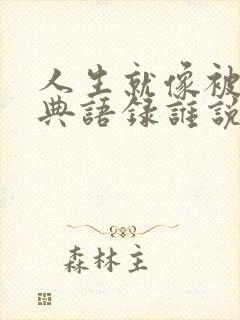 人生就像被
典語錄誰說
森林主